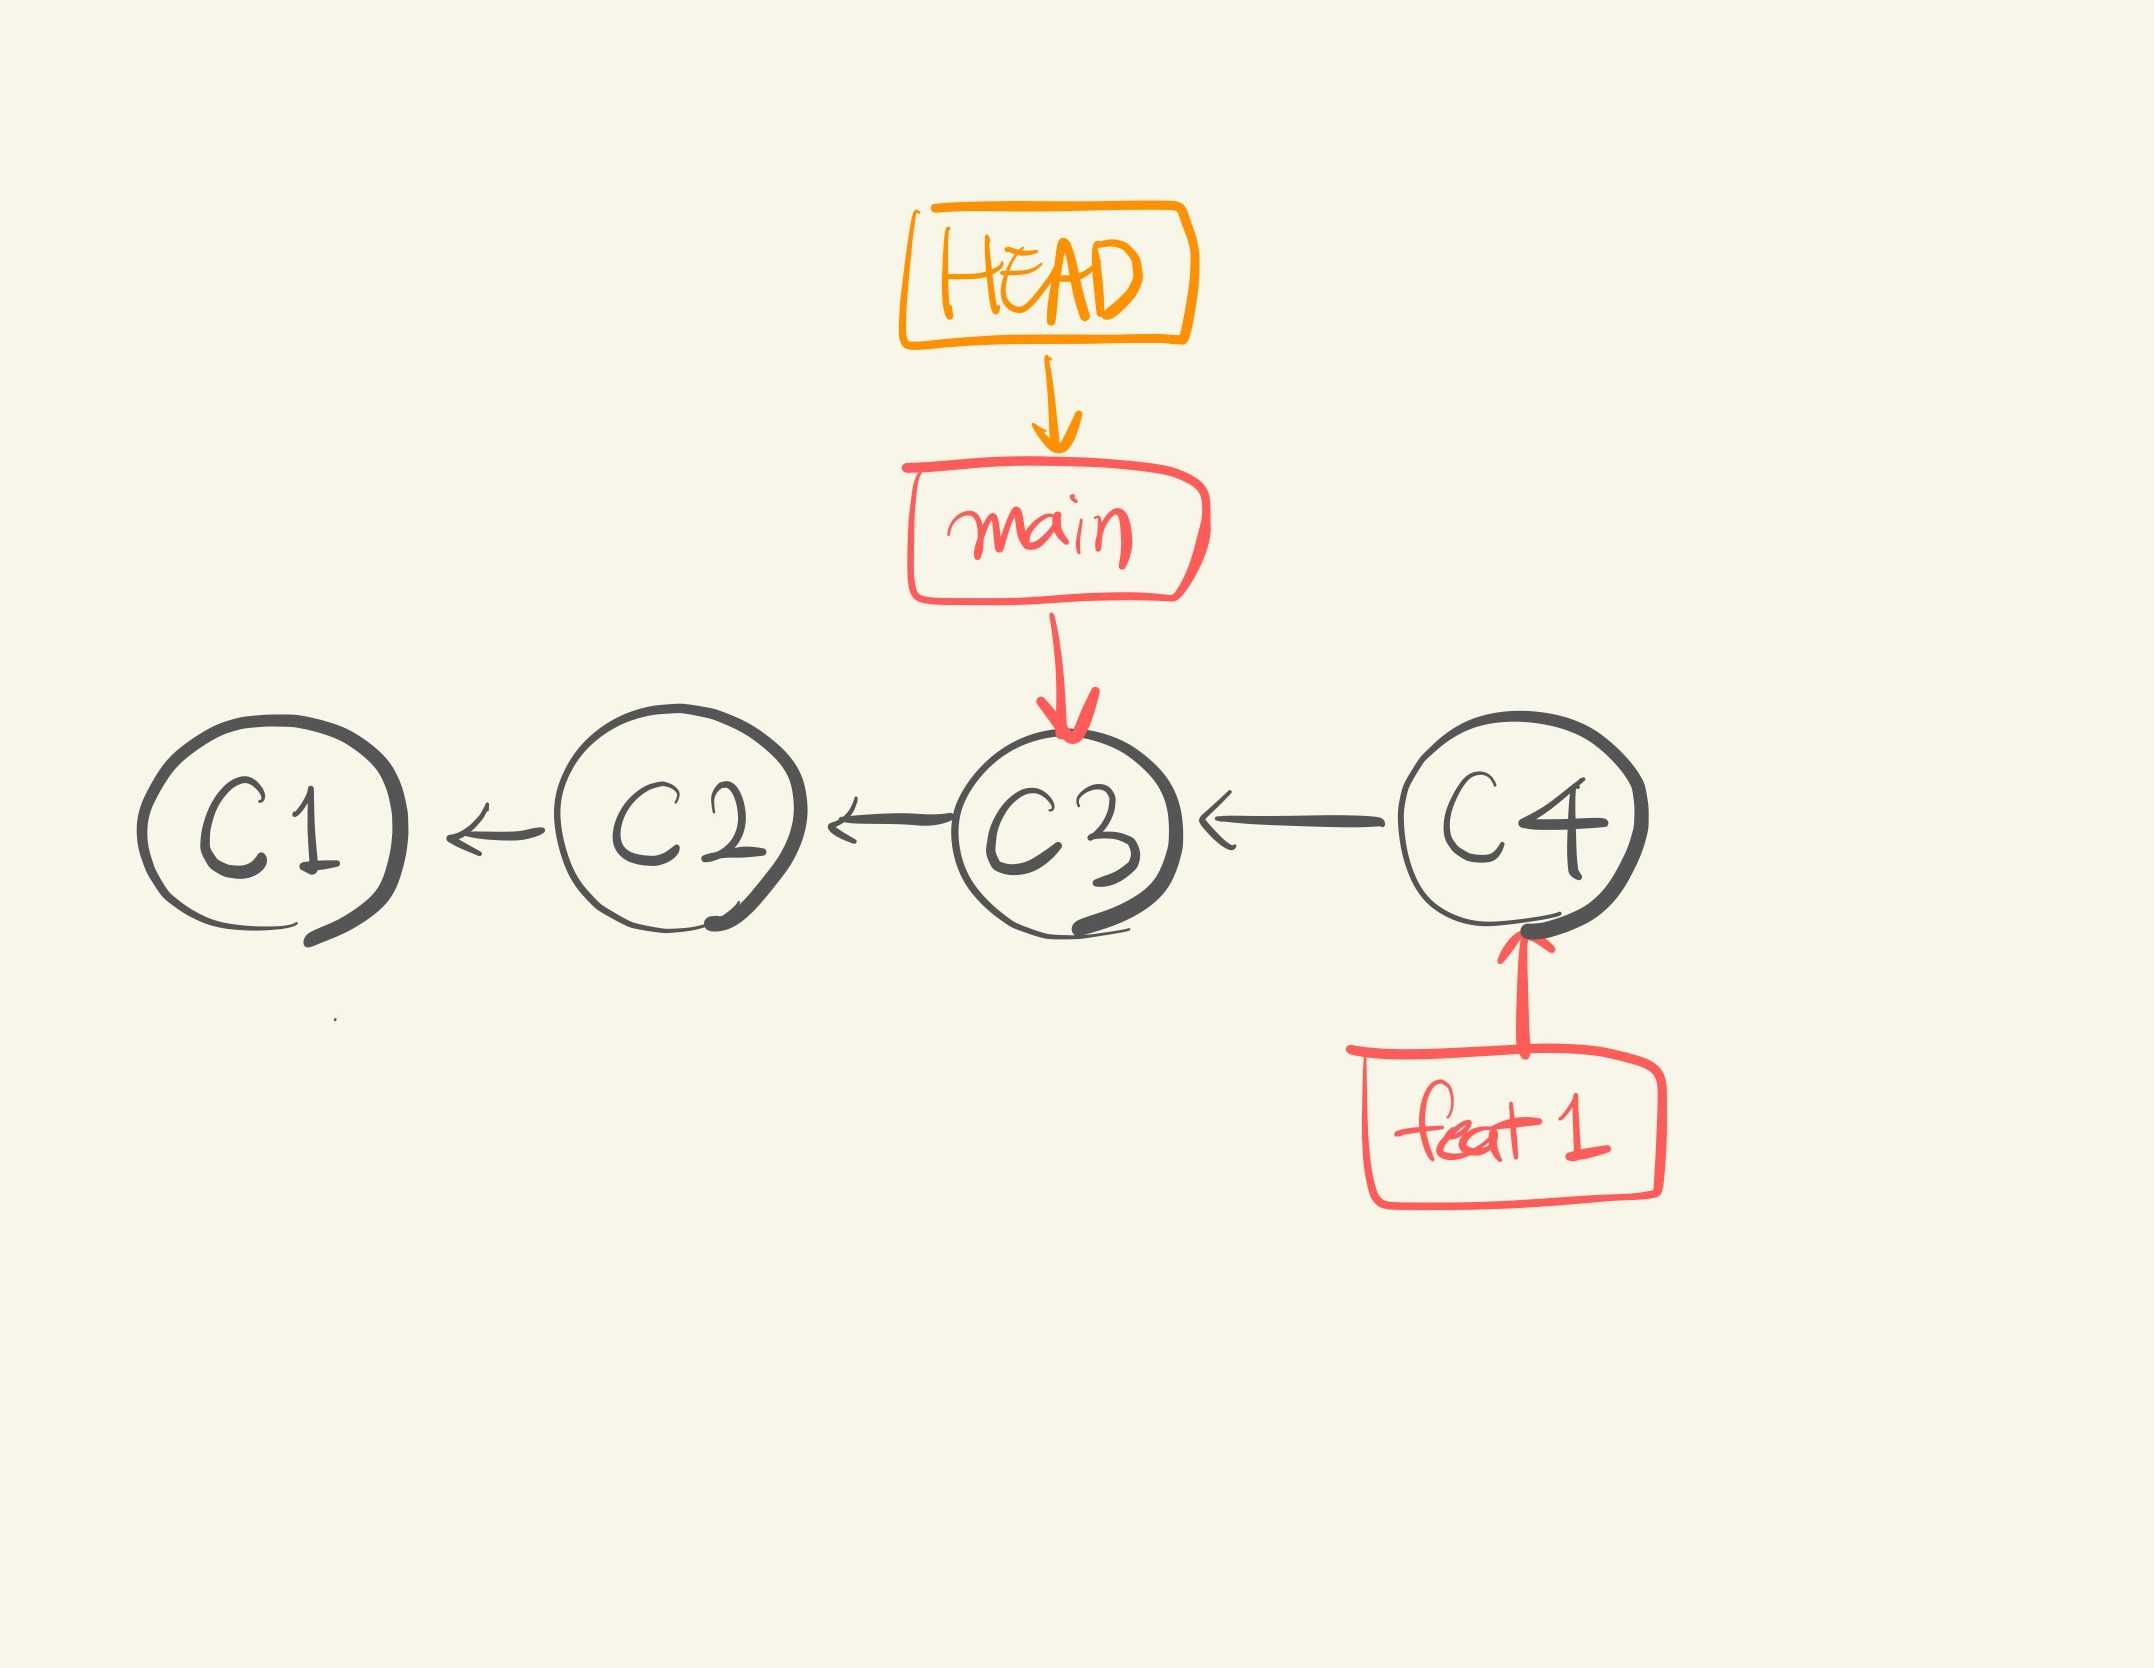 HEAD
main
C1 C2 C3 C4
feat 1